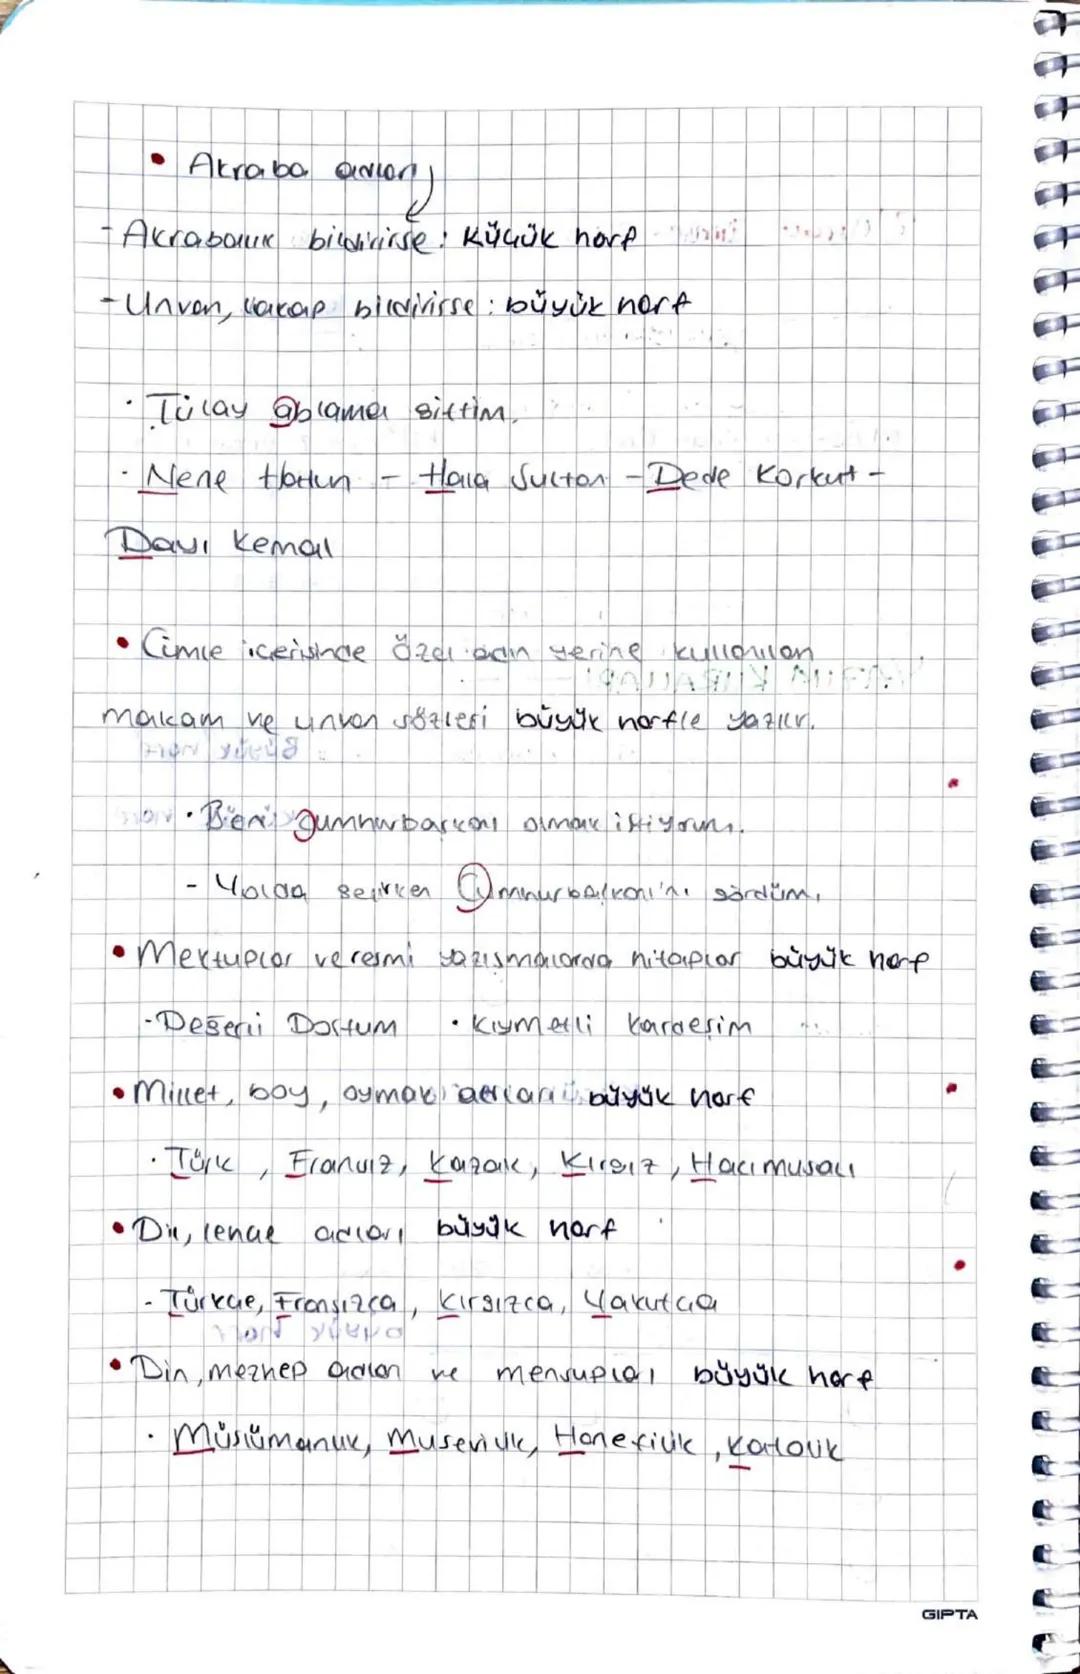 • Akraba adları
- Akrabalık bildirirse : küçük harf
- Unvan, lakap bildirirse : büyük harf
· Tülay ablama gittim.
· Nene Hatun - Hala Sultan - Dede Korkut -
Dayı Kemal
• Cümle içerisinde özel adın yerine kullanılan
makam ve unvan sözleri büyük harfle yazılır.
· cumhurbaşkanı olmak istiyorum.
- Yolda geçerken Cumhurbaşkanı'nı gördüm.
• Mektuplar ve resmi yazışmalarda hitaplar büyük harf
- Değerli Dostum · Kıymetli Kardeşim
• Millet, boy, oymak adları büyük harf
· Türk, Fransız, Kazak, Kırgız, Hacımusalı
• Dil, lehçe adları büyük harf
- Türkçe, Fransızca, Kırgızca, Yakutça
• Din, mezhep adları ve mensupları büyük harf
· Müslümanlık, Musevilik, Hanefilik, Katolik
GIPTA